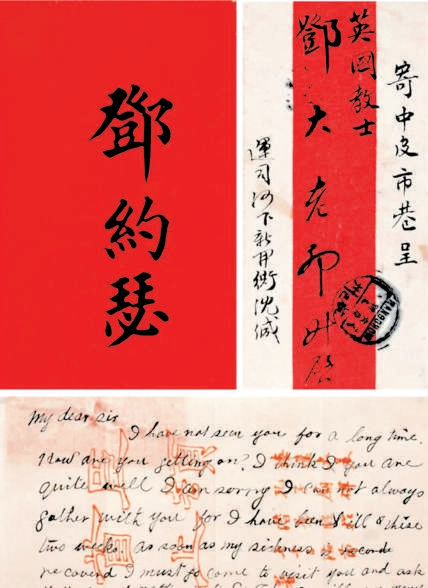 鄧約瑟
寄中皮市巷呈
英國教士
鄧大老爺升啟
運司河下新 沈緘
My dear sir
I have not seen you for a long time.
How are you getting on? I think I you are
quite well I am sorry I can not always
gather with you for I have been
two weeks. As soon as my sickness is
recoverd I must go come to visit you and ask